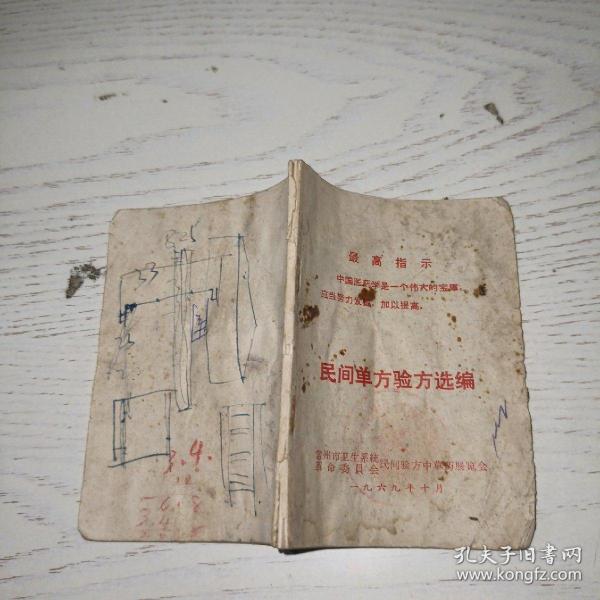 最高指示
中国医药学是一个伟大的宝库,
应当努力发掘,加以提高。
民间单方验方选编
常州市卫生系统
革命委员会
民间验方中草药展览会
一九六九年十月
3.4.
孔夫子旧书网
www.kongfz.com